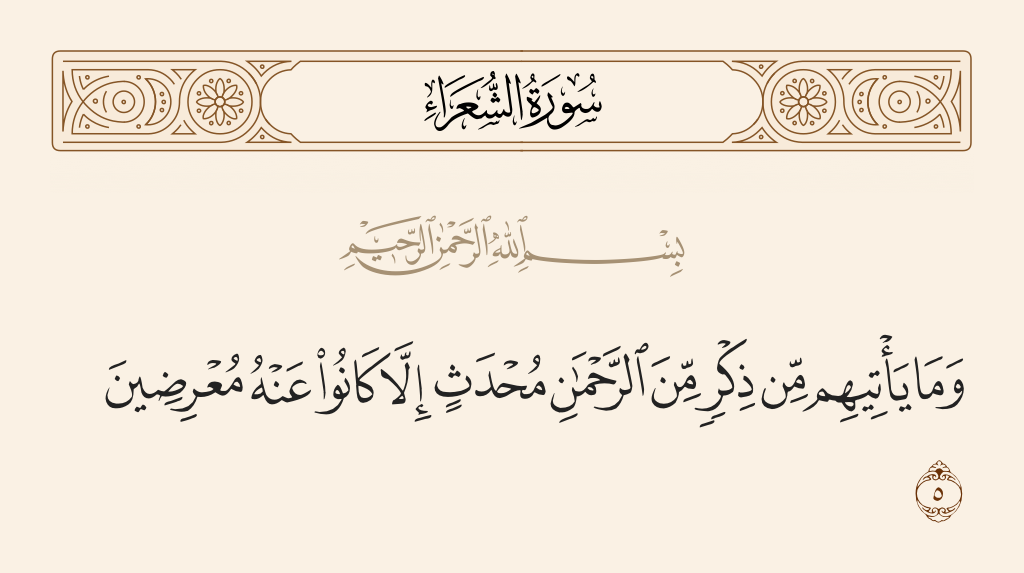 سُورَةُ الشُّعَرَاءِ
بِسْمِ ٱللَّهِ ٱلرَّحْمَٰنِ ٱلرَّحِيمِ
وَمَا يَأْتِيهِم مِّن ذِكْرٍ مِّنَ ٱلرَّحْمَٰنِ مُحْدَثٍ إِلَّا كَانُوا۟ عَنْهُ مُعْرِضِينَ
٥